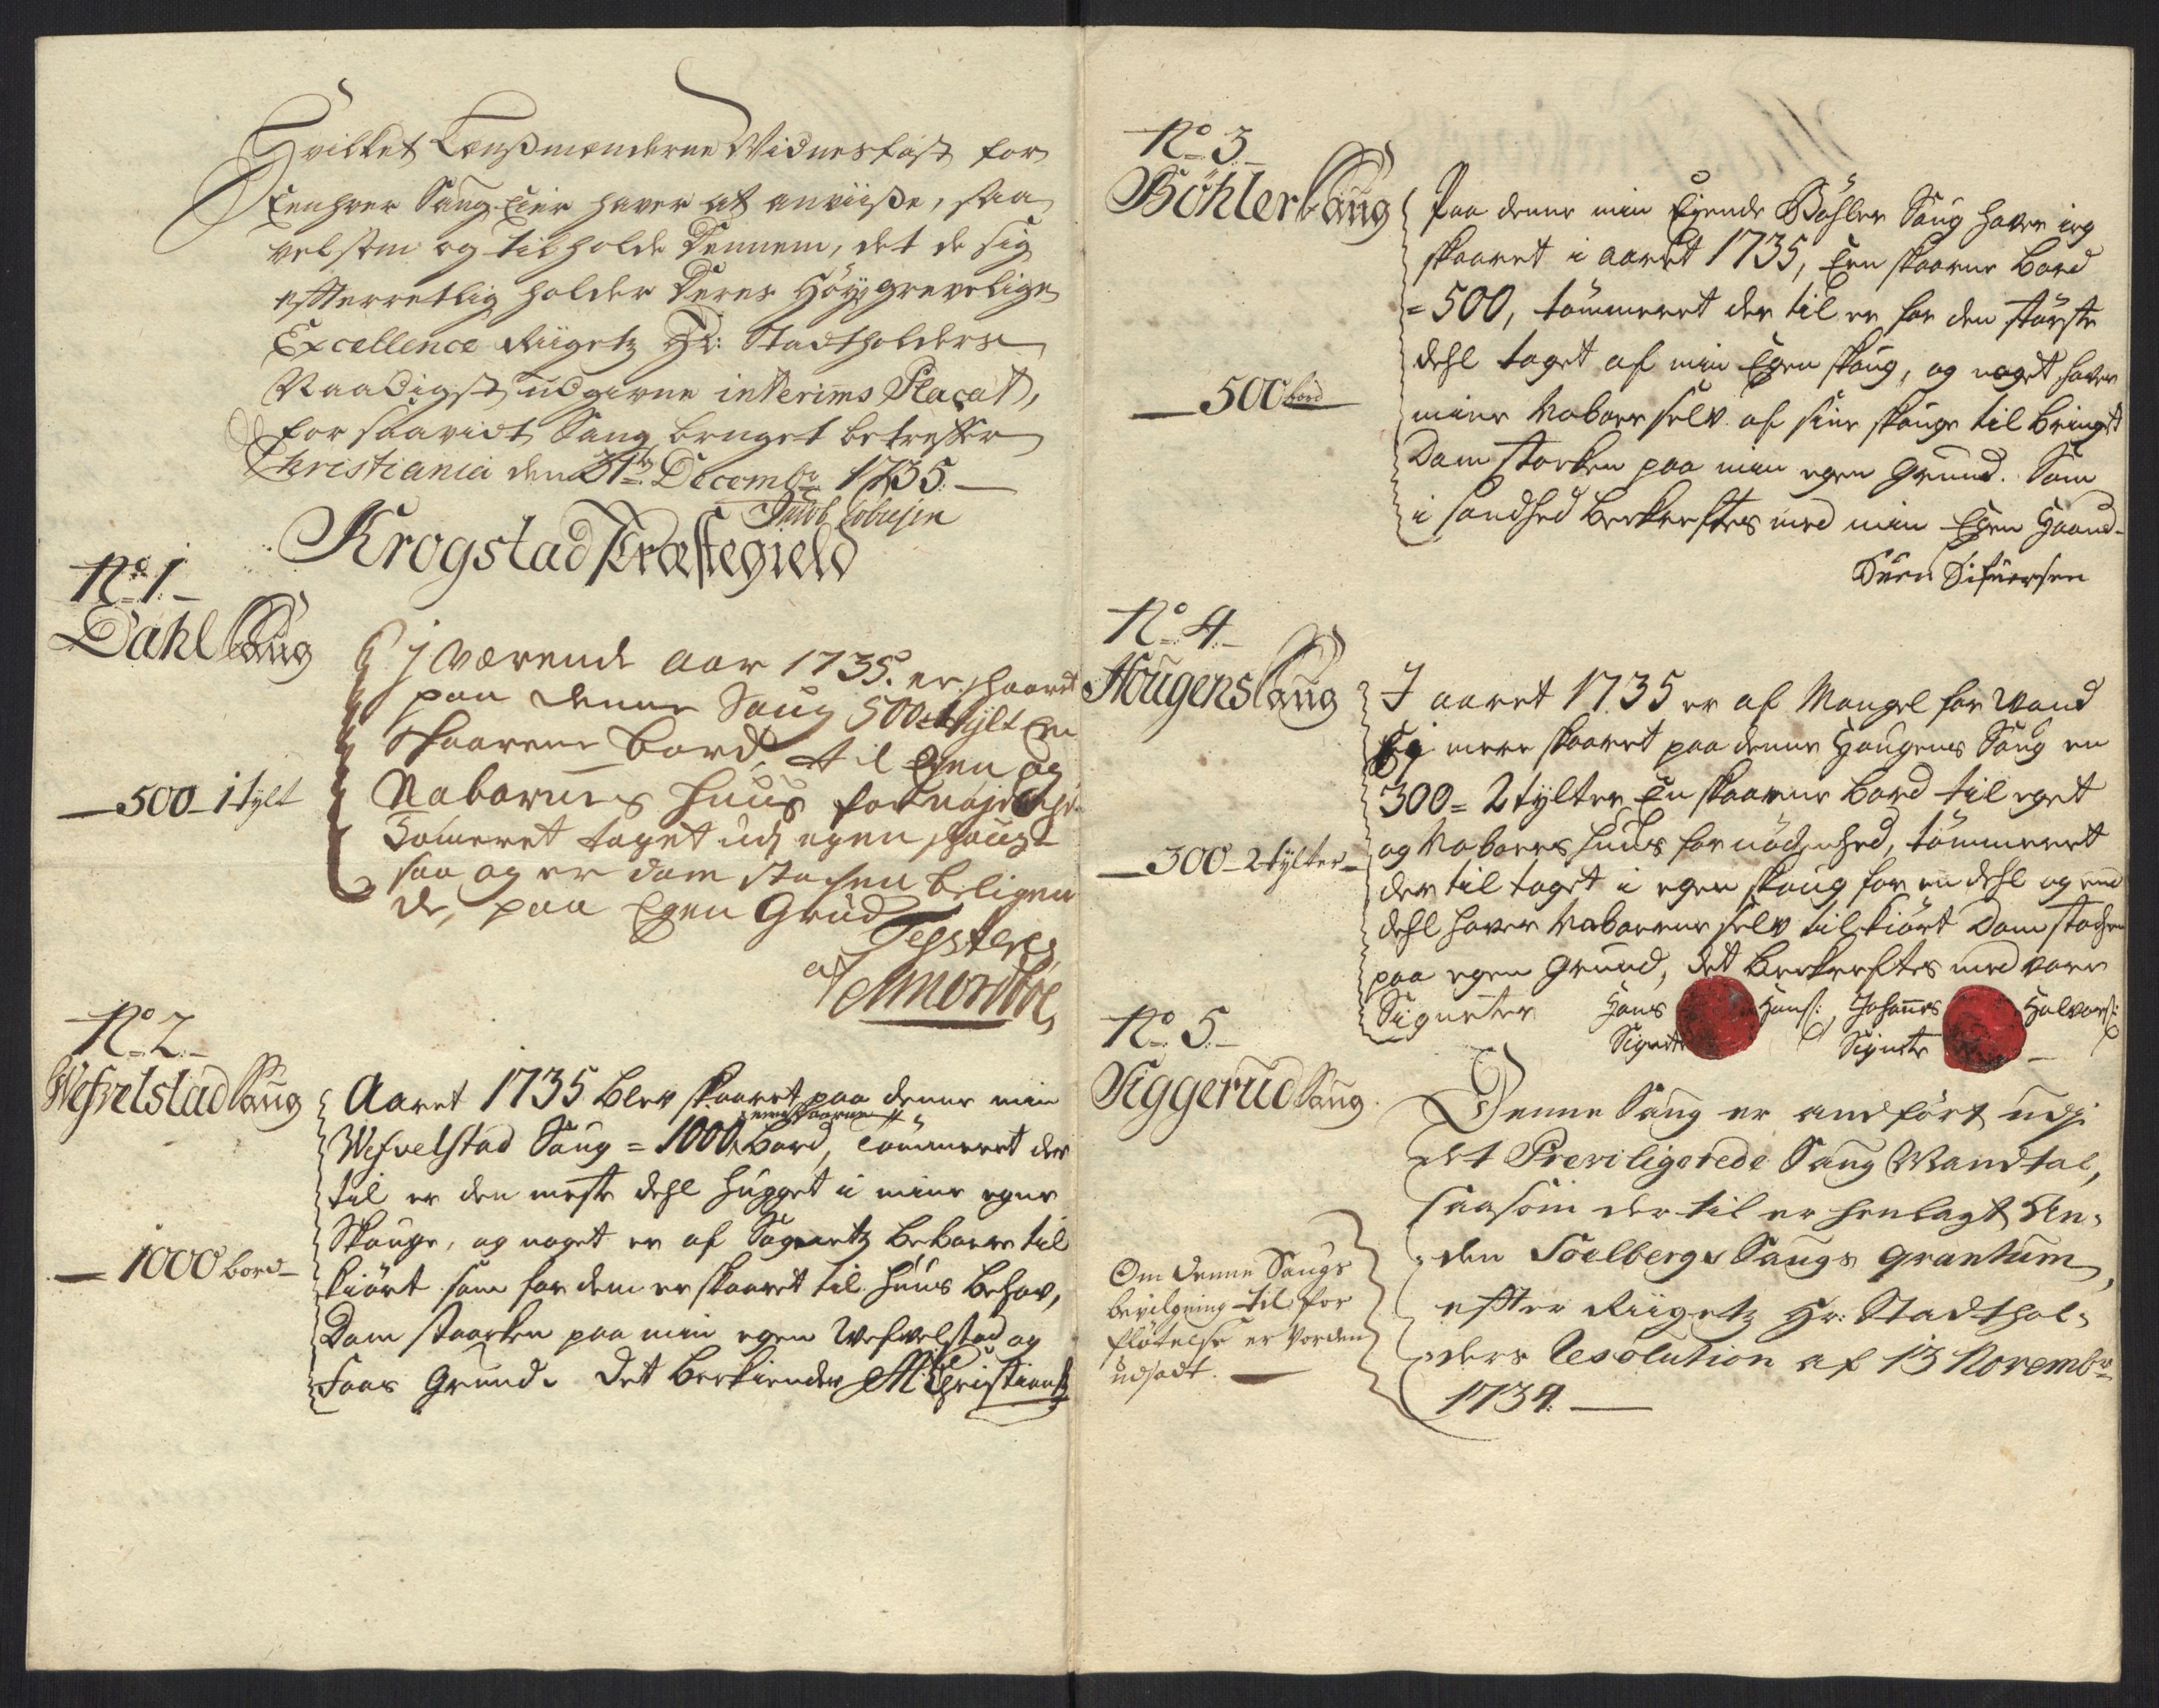 Hvilket Lensmænderne Vidnesfast for
Eenhver Saug Eier haver at anviise, saa
velsom og tilholde Dennem, det de sig
efterretlig holder Deres Höy grevelige
Excellence Riigetz Hr: Stadtholders
Naadigst udgivne interims Placat,
for saavidt Saug bruget betreffer
Christiania den 31te Decembr 1735.
Jacob Jobiesen
Krogstad Præstegield
No 1
Dahl Saug
J værende aar 1735. er skaaret
paa denne Saug 500 1 tylt En
skaarene bord, til Egen og
Naboernes huus fornöjdenhed
Tömeret taget udj egen skougt
saa og er dam stochen beligen
de, paa Egen Grud
Testeres
af AMordtbøe
500 1 tylt
No 2
Wefvelstad Saug
Aaret 1735 blev skaaret paa denne min
Wefvelstad Saug = 1000 eenskaarne bord, Tömmeret der
til er den meste dehl hugget i mine egne
Skouge, og noget er af Sognetz beboere til
kiört som for dem er skaaret til huus behov,
Dam staacken paa min egen Wefvelstad og
Faas Grund. Det bekiender M Christians
1000 bord
No 3
Böhler Saug
Paa denne min Eyende Böhler Saug haver ieg
skaaret i aaret 1735, Een skaarne bord
= 500, tömmeret der til er for den störste
dehl taget af min Egen skoug, og noget haver
mine Naboer selv af sine skouge til bringt
Dam stocken paa min egen Grund. Som
i sandhed bekreftes med min Egen Haand
Suen Sifuersen
500 bord
No 4
Hougen Saug
J aaret 1735 er af Mangel for Vand
Ej mere skaaret paa denne Hougens Saug en
300 = 2 tylter En skaarne bord til eget
og Naboers huus fornödenhed, tömmeret
der til taget i egen skoug for en dehl og een
dehl haver Naboerne selv tilkiört Dam stochen
paa egen Grund, det bekreftes med vore
Signeter Hans Hans: Johannes Halvors:
Signete Signete
300 2 tylter
No 5
Siggerud Saug
Denne Saug er andfört udj
det Previligerede Saug Mandtal,
saasom der til er henlagt An-
den Soelbergs Saugs qvantum,
efter Riigetz Hr: Stadthol-
ders Resolution af 13 Novembr
1734.
Om denne Saugs
bevilgning til for
flötelse er vorden
udsadt.